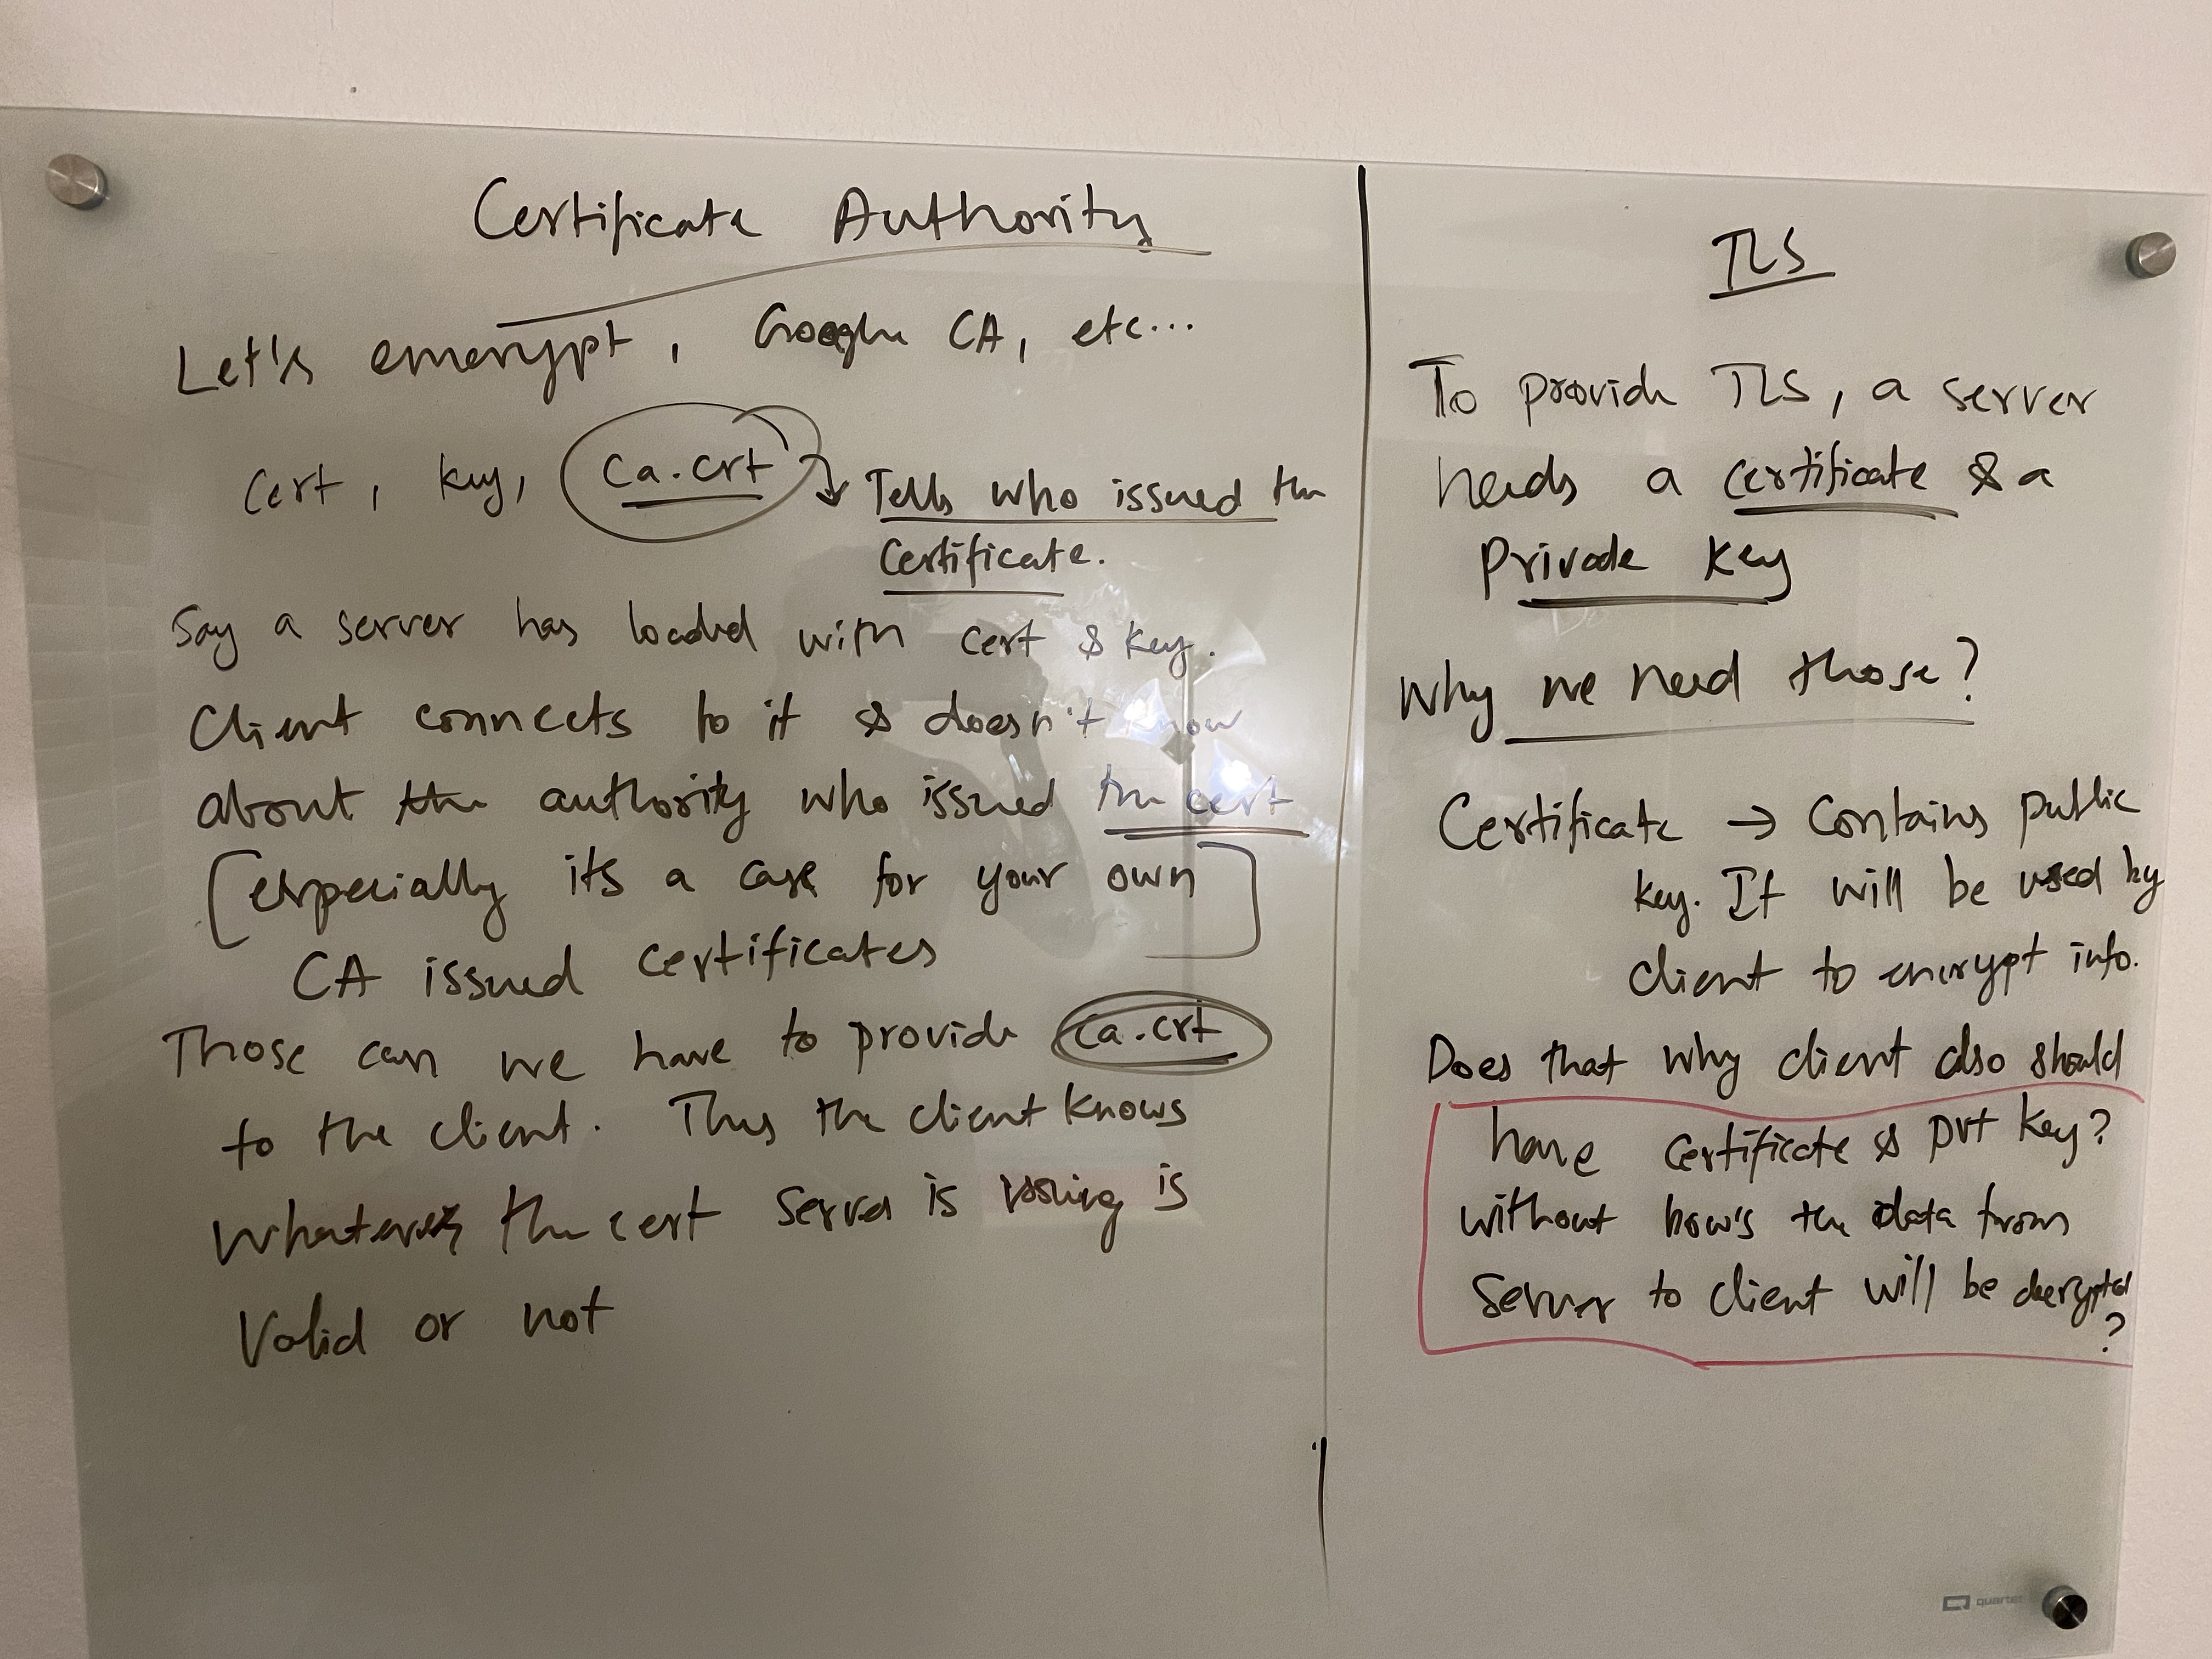 Certificate Authority
Let's emcrypt, Google CA, etc...
cert, key, ca.crt Tells who issued the
certificate.
Say a server has loaded with cert & key.
Client connects to it & doesn't know
about the authority who issued the cert
[especially its a case for your own
CA issued certificates]
Those can we have to provide ca.crt
to the client. Thus the client knows
whatever the cert server is is
Valid or not
TLS
To provide TLS, a server
needs a certificate & a
Private Key
Why we need those?
Certificate → Contains public
key. It will be used by
client to encrypt info.
Does that why client also should
have certificate & pvt key?
without how's the data from
Server to client will be decrypted
?
quartet